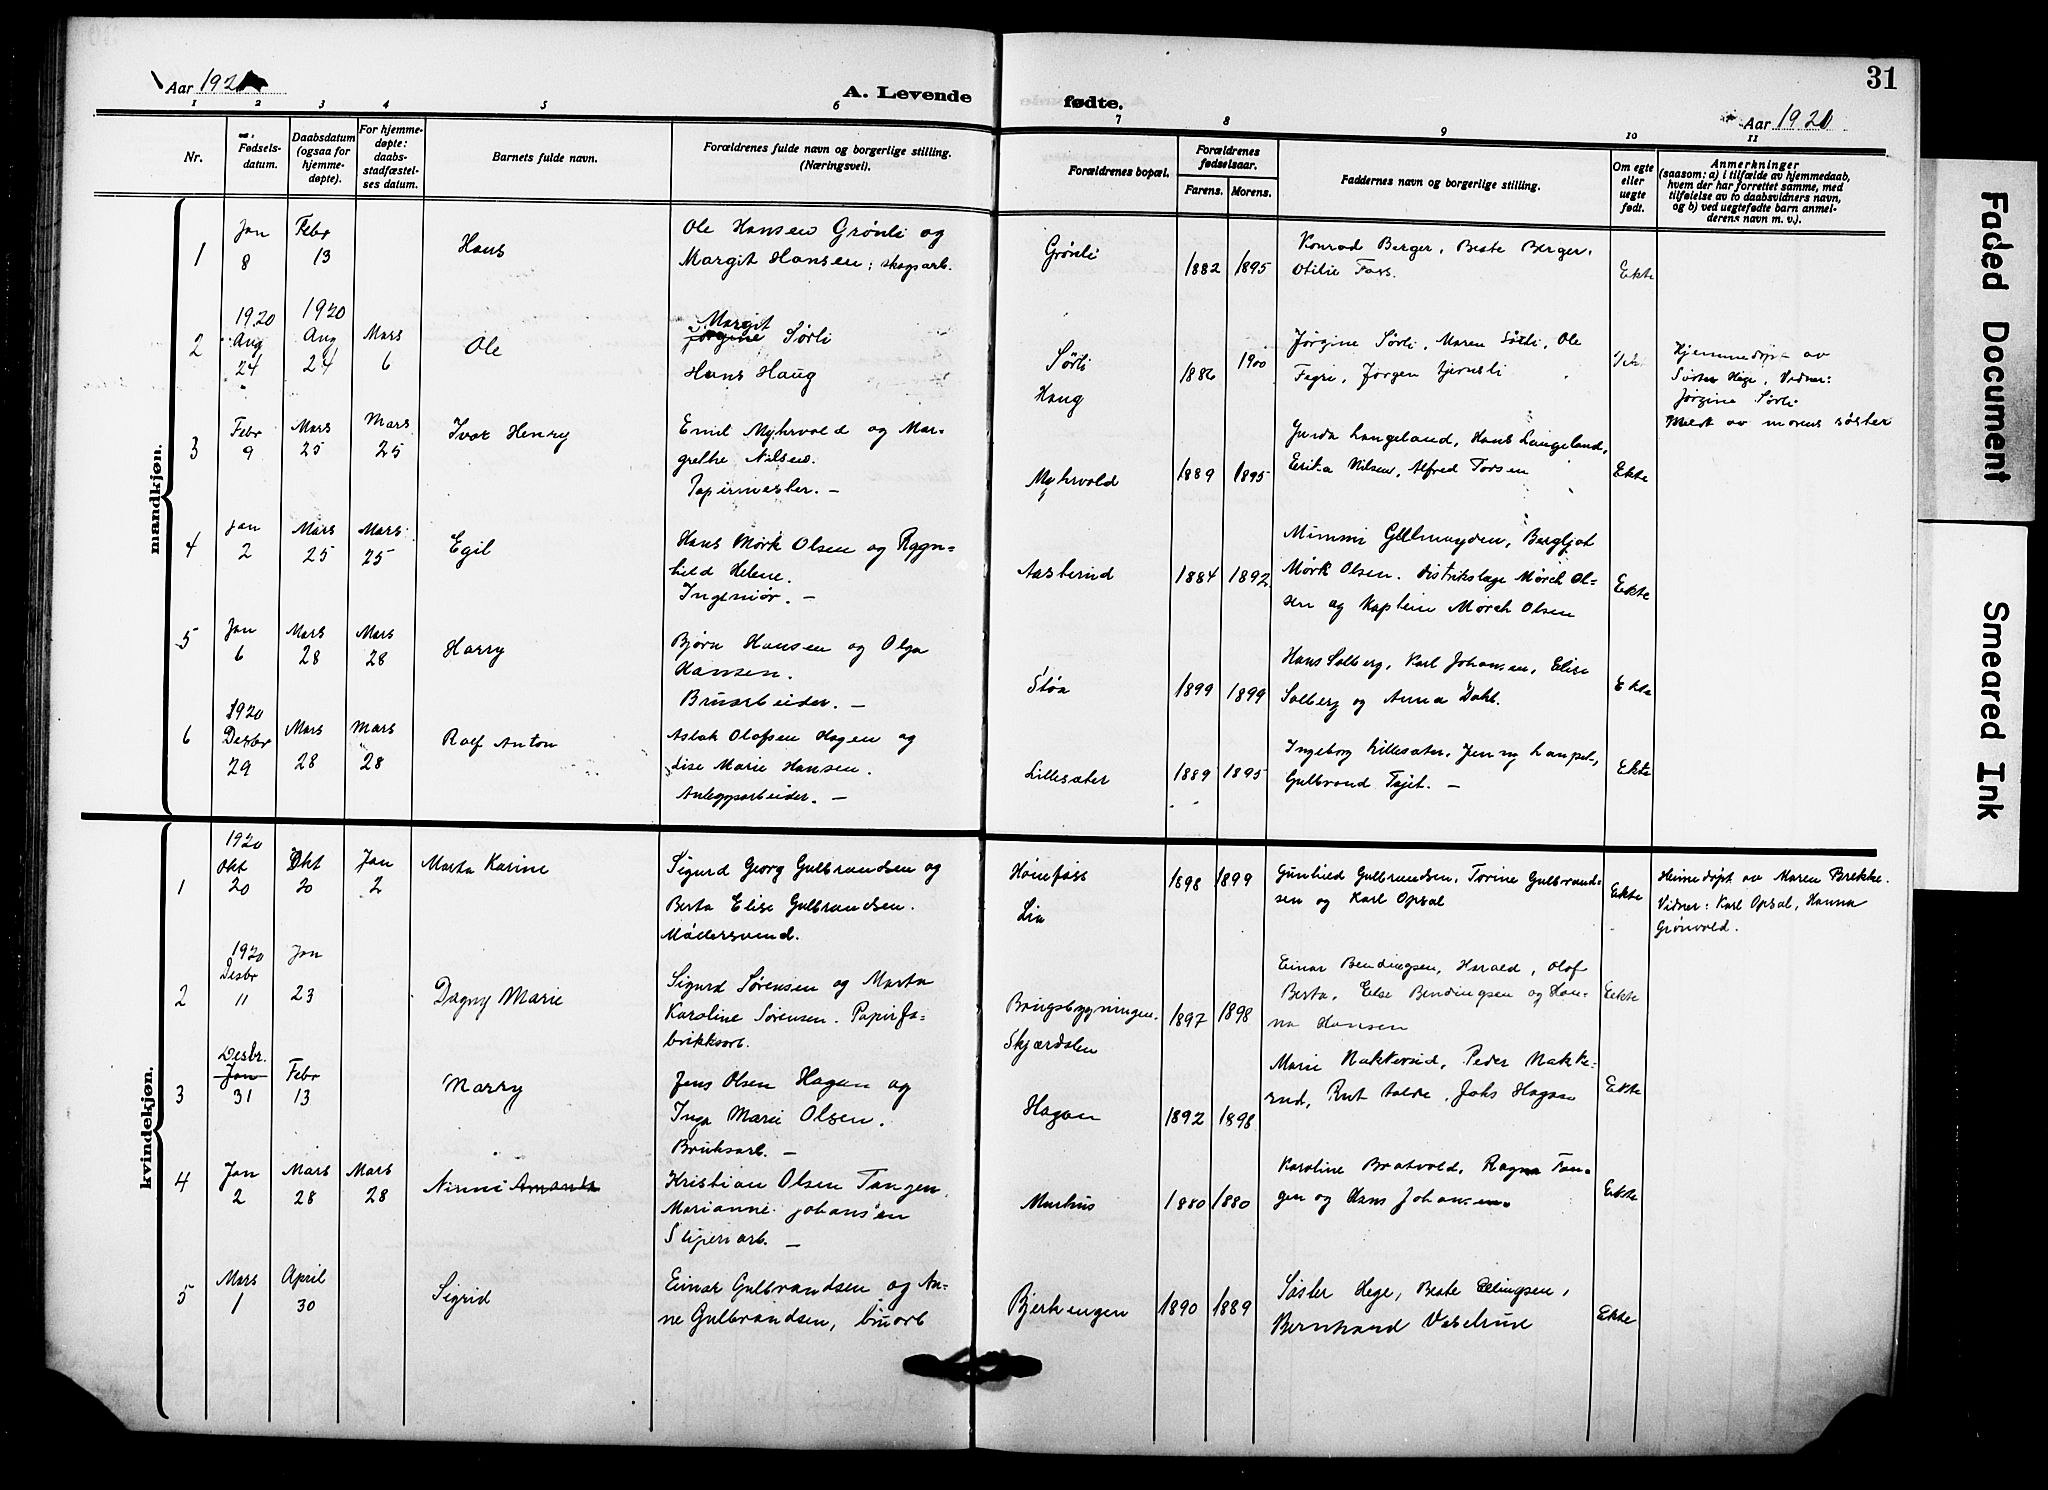 Aar 1921
A. Levende fødte.
31
Aar 1921
1 2 3 4 5 6 7 8 9 10 11
Nr.
Fødsels-
datum.
Daabsdatum
(ogsaa for
hjemme-
døpte).
For hjemme-
døpte:
daabs-
stadfæstel-
ses datum.
Barnets fulde navn.
Forældrenes fulde navn og borgerlige stilling.
(Næringsvei).
Forældrenes bopæl.
Forældrenes
fødselsaar.
Farens. Morens.
Faddernes navn og borgerlige stilling.
Om egte
eller
uegte
født.
Anmerkninger
(saasom: a) i tilfælde av hjemmedaab,
hvem der har forrettet samme, med
tilføielse av to daabsvidners navn,
og b) ved uegtefødte barn anmel-
derens navn m. v.).
mandkjøn.
1
Jan
8
Febr
13
Hans
Ole Hansen Grønli og
Margit Hansen; skogsarb.
Grønli
1882 1895
Konrad Berger, Beate Berger,
Otilie Foss.
Ekte
2
1920
Aug
24
1920
Aug
24
Mars
6
Ole
Margit
Jørgine Sørli
Hans Haug
Sørli
Haug
1886 1900
Jørgine Sørli, Maren Sørli, Ole
Fagri, Jørgen
Hjemmedøpt av
Søster Hege, Vidner:
Jørgine Sørli
Meldt av morens søster
3
Febr
9
Mars
25
Mars
25
Ivar Henry
Emil Myhrvold og Mar-
grethe Nilsen.
Papirmester. —
Myhrvold
1889 1895
Gurda Langeland, Hans Langeland,
Erika Nilsen, Alfred Torsen
Ekte
4
Jan
2
Mars
25
Mars
25
Egil
Hans Mørk Olsen og Ragn-
hild Helene.
Ingeniør. —
Aasterud
1884 1892
Mimmi Gullmoyden, Bergljot
Mørk Olsen. distrikslæge Mørch Ol-
sen og Kaptein Mørch Olsen
Ekte
5
Jan
6
Mars
28
Mars
28
Harry
Bjørn Hansen og Olga
Hansen.
Bruarbeider. —
Støa
1899 1899
Hans Solberg, Karl Johansen, Elise
Solberg og Anna Dahl.
Ekte
6
1920
Desbr
29
Mars
28
Mars
28
Rolf Anton
Aslak Olafsen Hagen og
Lise Marie Hansen.
Anleggsarbeider. —
Lillesæter
1889 1895
Ingeborg Lillesæter, Jenny
Gulbrand Tajet. —
Ekte
kvindekjøn.
1
1920
Okt
20
Okt
20
Jan
2
Marta Karine
Sigurd Georg Gulbrandsen og
Berta Elise Gulbrandsen.
Møllersvend.
Hønefoss
Lia
1898 1899
Gunhild Gulbrandsen, Torine Gulbrand-
sen og Karl Opsal
Ekte
Heimedøpt av Maren Brekke.
Vidner: Karl Opsal, Hanna
Grønvold.
2
1920
Desbr
11
Jan
23
Dagny Marie
Sigurd Sørensen og Marta
Karoline Sørensen. Papirfa-
brikksarb.
Brugsbygningen.
Skjærdalen
1897 1898
Einar Bendingsen, Harald, Olaf
Berta, Else Bendingsen og Han-
na Hansen
Ekte
3
Desbr.
Jan
31
Febr
13
Marry
Jens Olsen Hagan og
Inga Marie Olsen.
Bruksarb. —
Hagan
1892 1898
Marie Nakkerud, Peder Nakke-
rud, Rut Lolde, Johs Hagan
Ekte
4
Jan
2
Mars
28
Mars
28
Ninni Amanda
Kristian Olsen Tangen,
Marianne Johansen
Sliperiarb. —
Marhus
1880 1880
Karoline Bratvold, Ragna Tan-
gen og Hans Johansen.
Ekte
5
Mars
1
April
30
Sigrid
Einar Gulbrandsen og An-
ne Gulbrandsen, bruarb
Bjerkengen
1890 1889
Søster Hege, Beate Ellingsen,
Bernhard Veselrud
Ekte
Faded Document
Smeared Ink